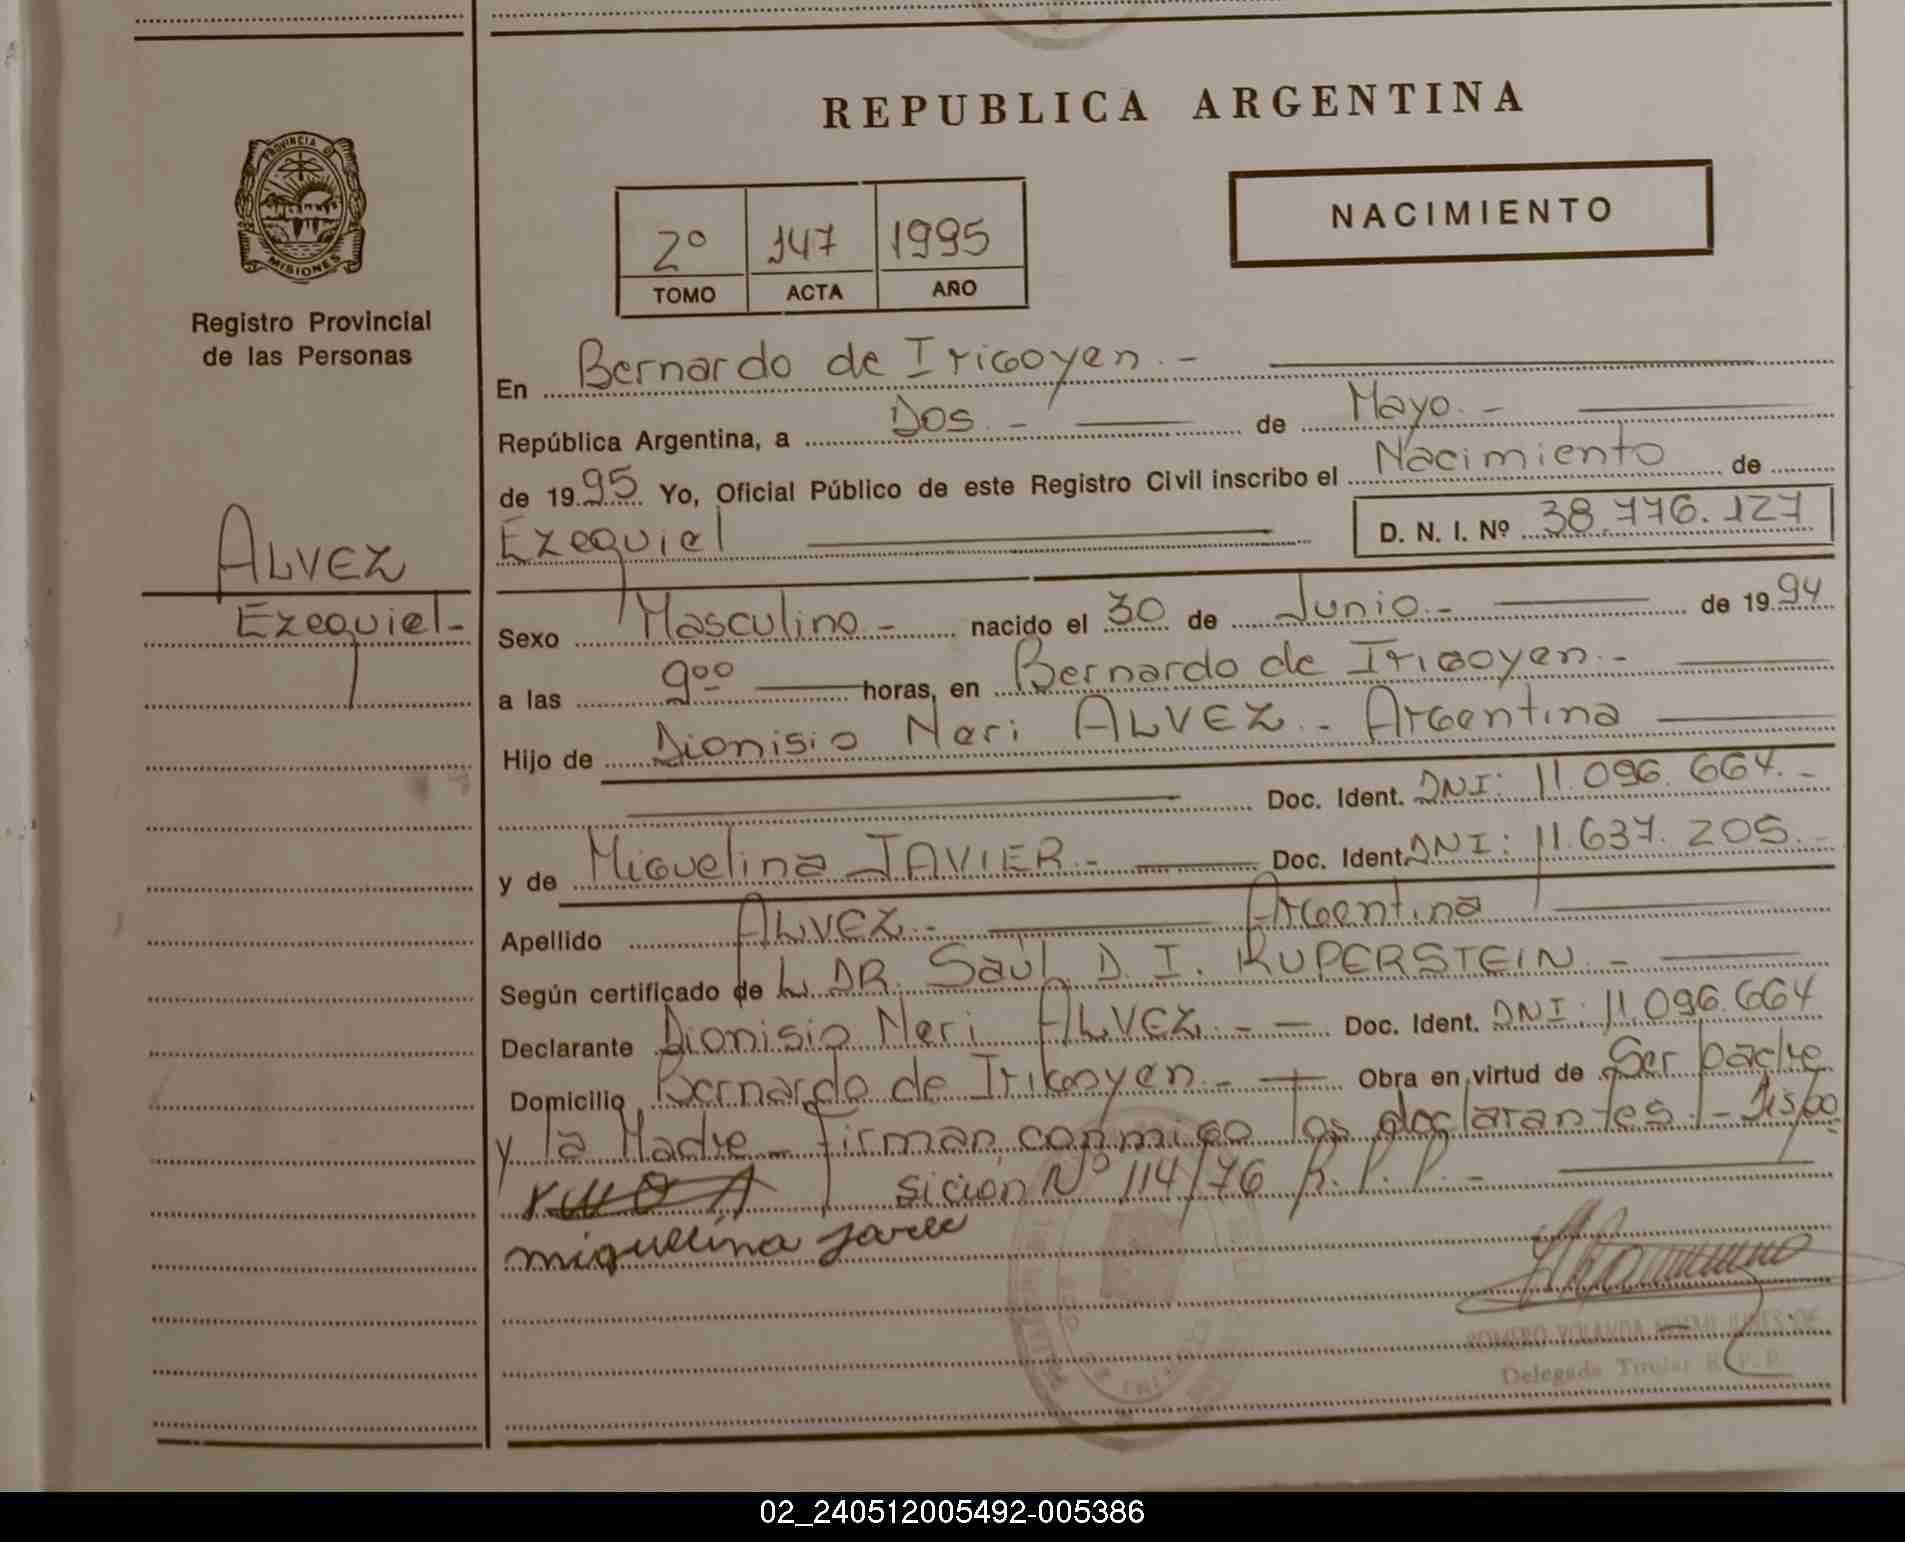 REPUBLICA ARGENTINA
PROVINCIA DE
MISIONES
Registro Provincial
de las Personas
NACIMIENTO
2º 147 1995
TOMO ACTA AÑO
ALVEZ
Ezequiel-
En Bernardo de Irigoyen.-
República Argentina, a Dos.- de Mayo.-
de 1995 Yo, Oficial Público de este Registro Civil inscribo el Nacimiento de
Ezequiel D. N. I. Nº 38.776.127
Sexo Masculino- nacido el 30 de Junio.- de 1994
a las 9ºº horas, en Bernardo de Irigoyen.-
Hijo de Dionisio Neri ALVEZ.- Argentina
Doc. Ident. DNI: 11.096.664.-
y de Miguelina JAVIER.- Doc. Ident. DNI: 11.637.205.-
Argentina
Apellido ALVEZ.-
Según certificado de L. DR. Saúl D. I. KUPERSTEIN.-
Declarante Dionisio Neri ALVEZ.- Doc. Ident. DNI: 11.096.664
Domicilio Bernardo de Irigoyen.- Obra en virtud de Ser padre
y la Madre.- firman conmigo los declarantes.- Dispo
sición Nº 114/76 R.P.P.-
miguelina
ROMERO YOLANDA
Delegada Titular R.P.P.
02_240512005492-005386